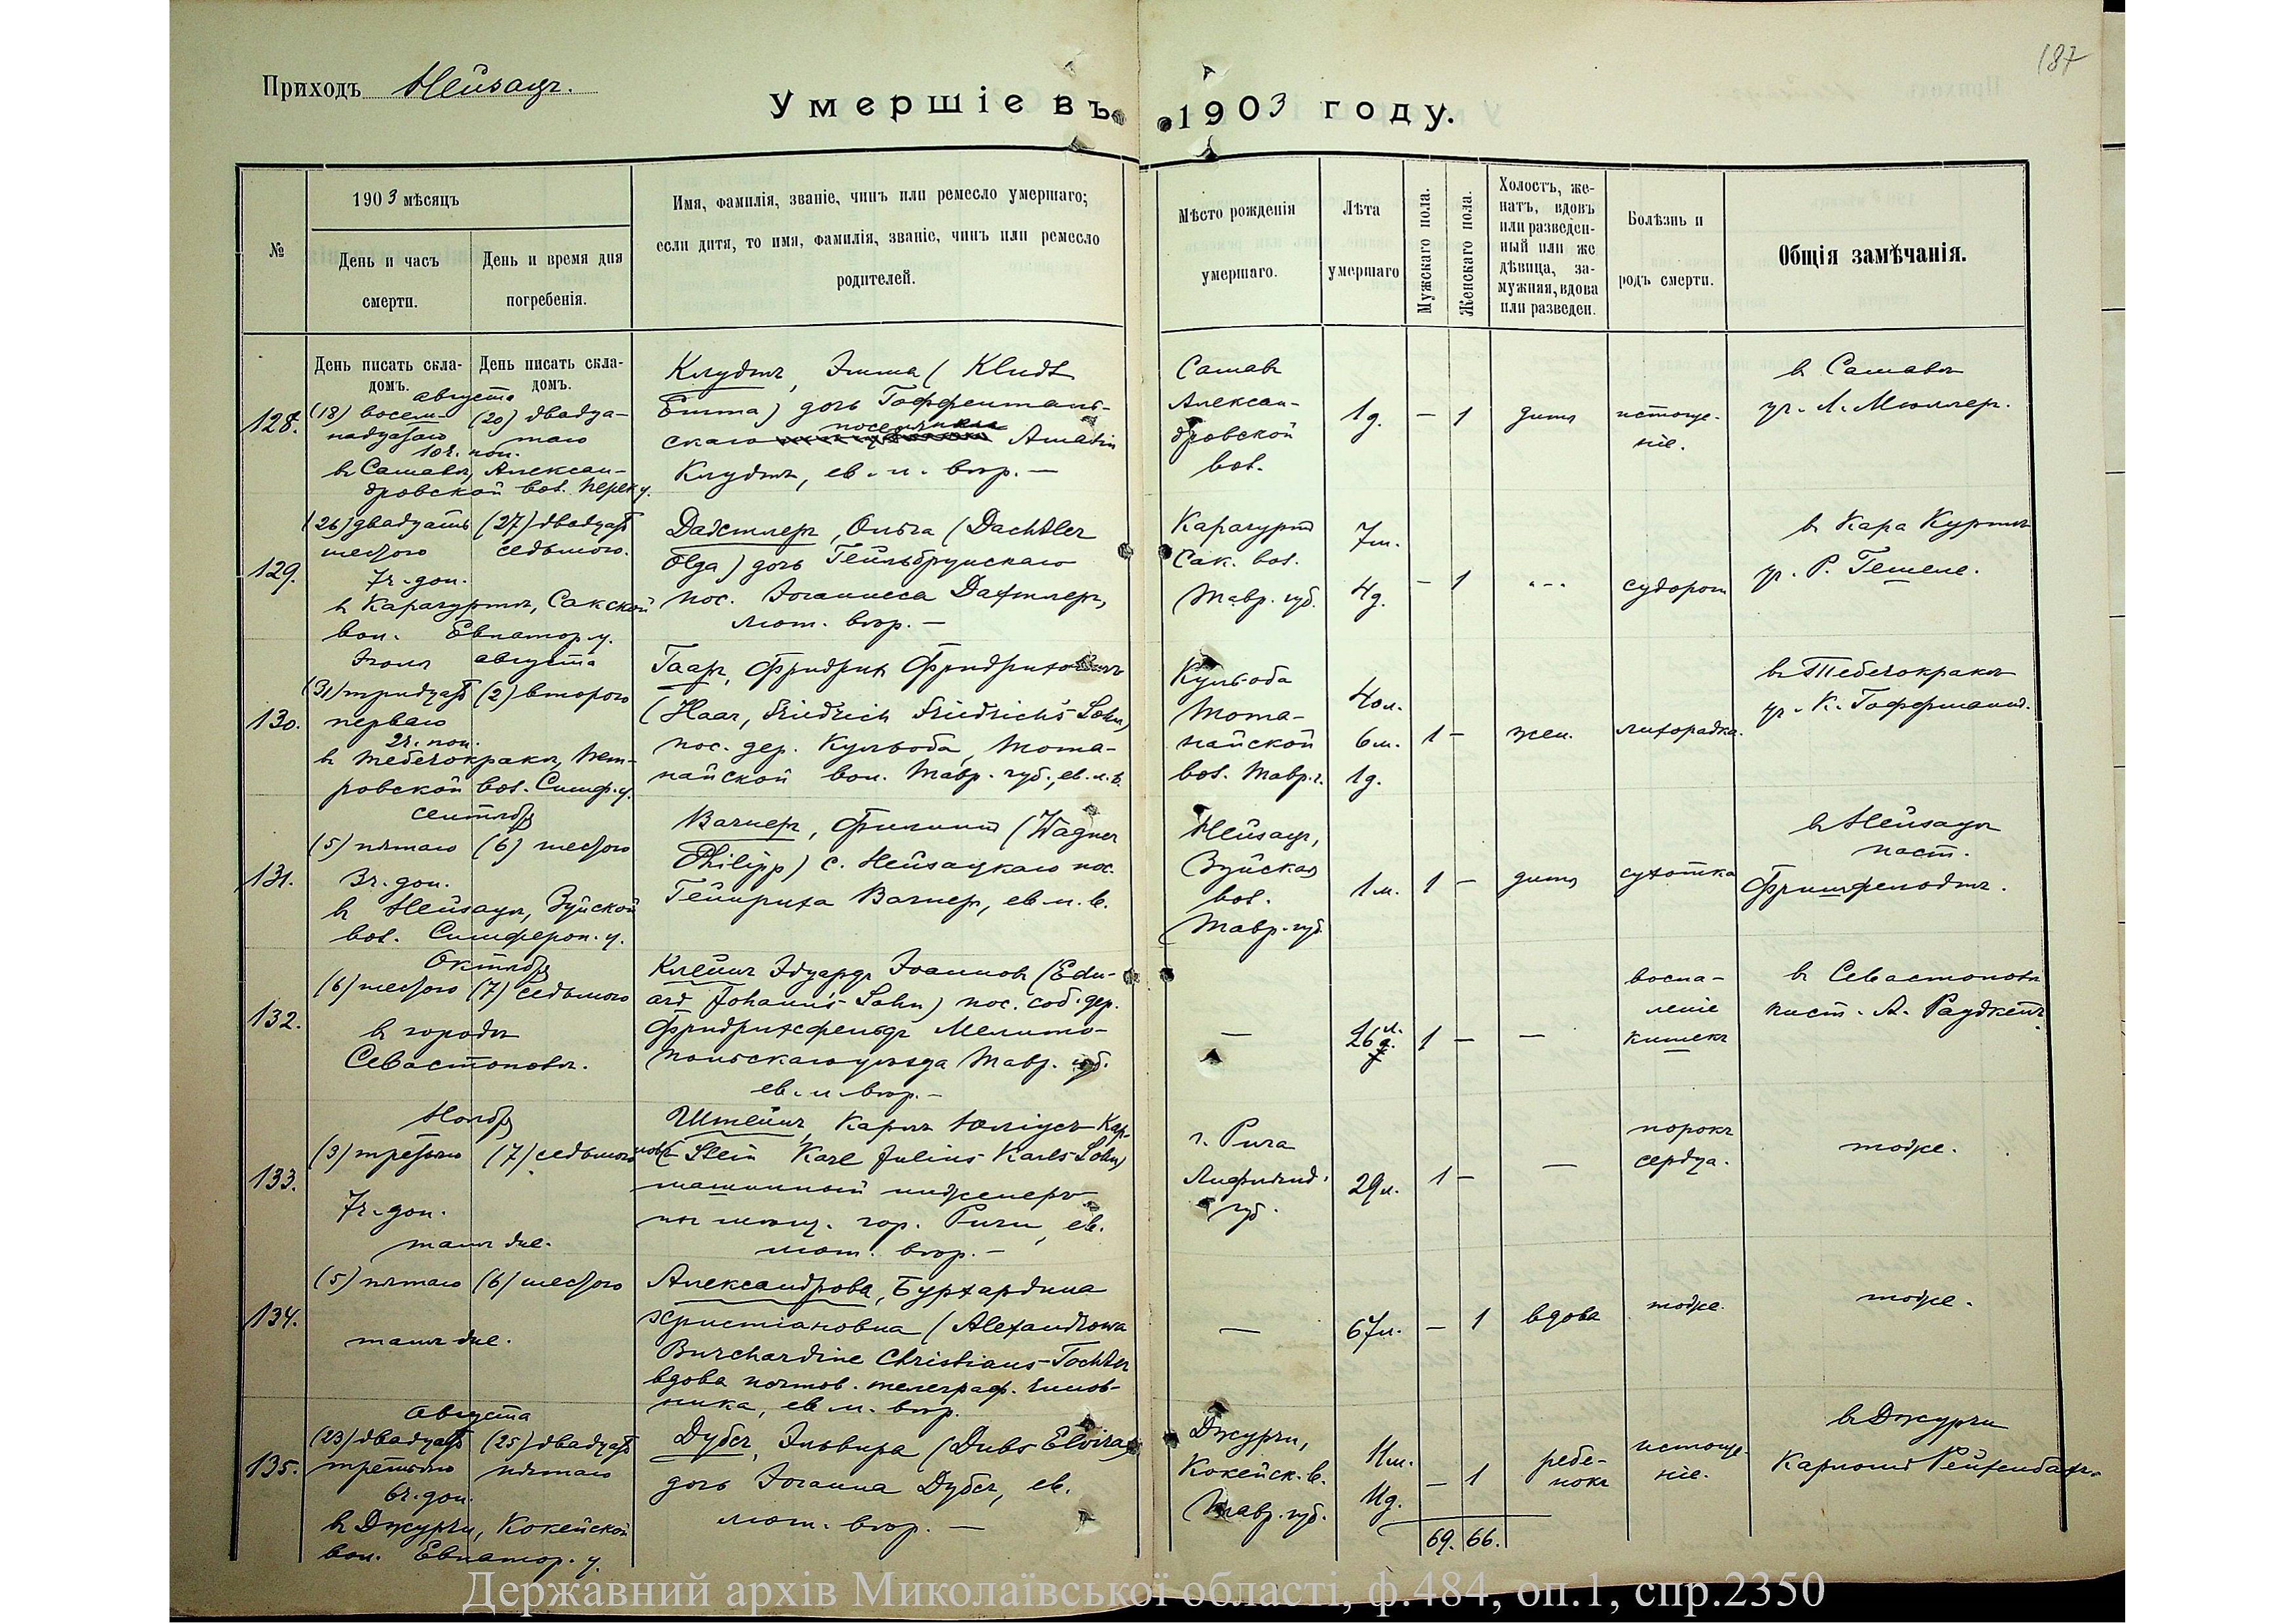 187
Приходъ Нейзацъ.
Умершіе въ 1903 году.
№
1903 мѣсяцъ
День и часъ смерти.
День и время дня погребенія.
Имя, фамилія, званіе, чинъ или ремесло умершаго;
если дитя, то имя, фамилія, званіе, чинъ или ремесло
родителей.
Мѣсто рожденія умершаго.
Лѣта умершаго
Мужскаго пола.
Женскаго пола.
Холостъ, же-
натъ, вдовъ
или разведен-
ный или же
дѣвица, за-
мужняя, вдова
или разведен.
Болѣзнь и родъ смерти.
Общія замѣчанія.
День писать скла-
домъ.
День писать скла-
домъ.
128.
августа
(18) восем- (20) двадца-
надцатаго таго
10 ч. поп.
въ Сашавѣ, Алексан-
дровской вол. Перек. у.
Клудтъ, Эмма (Kludt
Emma) дочь Гоффенталь-
скаго поселянина
Клудтъ, ев. л. вѣр. —
Сашав
Алексан-
дровской
вол.
1 д.
— 1
дитя
истоще-
ніе.
въ Сашавѣ
уч. Л. Мюллеръ.
129.
(26) двадцать (27) двадцать
шестого седьмого.
7 ч. доп.
въ Карагуртѣ, Сакской
вол. Евпатор. у.
Дахтлеръ, Ольга (Dachtler
Olga) дочь Гейльбрунскаго
пос. Іоганнеса Дахтлеръ,
лют. вѣр. —
Карагуртъ
Сак. вол.
Тавр. губ.
7 м.
4 д.
— 1
судороги
въ Кара Куртѣ
уч. Р. Гешеле.
130.
Іюля августа
(31) тридцать (2) второго
перваго
2 ч. поп.
въ Тебечокракѣ, Пет-
ровской вол. Симф. у.
Гааръ, Фридрихъ Фридриховичъ
(Haar, Friedrich Friedrich's Sohn)
пос. дер. Кульоба, Тота-
найской вол. Тавр. губ., ев. л. в.
Кульоба
Тота-
найской
вол. Тавр. г.
40 л.
6 м.
1 д.
1 —
жен.
лихорадка.
въ Тебечокракѣ
уч. К. Гофферманнъ.
131.
сентября
(5) пятаго (6) шестого
3 ч. доп.
въ Нейзацѣ, Зуйской
вол. Симфероп. у.
Вагнеръ, Филиппъ (Wagner
Philipp) с. Нейзацкаго пос.
Гейнриха Вагнеръ, ев. л. в.
Нейзацъ,
Зуйская
вол.
Тавр. губ.
1 м.
1 —
дитя
сухотка
въ Нейзацѣ
паст.
Фришфельдтъ.
132.
Октября
(6) шестого (7) седьмого
въ городѣ
Севастополѣ.
Клейнъ Эдуардъ Іоанновъ (Edu-
ard Johann's Sohn) пос. соб. дер.
Фридрихсфельдъ Мелито-
польскаго уѣзда Тавр. губ.
ев. л. вѣр. —
—
26 л.
1 —
—
воспа-
леніе
кишекъ
въ Севастополѣ
паст. А.
133.
Ноября
(3) третьяго (7) седьмого
7 ч. доп.
тамъ же.
Штейнъ, Карлъ Юліусъ Кар-
ловъ (Stein Karl Julius Karls Sohn)
машинный инженеръ
гор. Риги, ев.
лют. вѣр. —
г. Рига
Лифлянд.
губ.
29 л.
1 —
—
порокъ
сердца.
тоже.
134.
(5) пятаго (6) шестого
тамъ же.
Александрова, Бурхардина
Христіановна (Alexandrowa
Burchardine Christians-Tochter
вдова почтов. телеграф. чинов-
ника, ев. л. вѣр.
—
67 л.
— 1
вдова
тоже.
тоже.
135.
Августа
(23) двадцать (25) двадцать
третьяго пятаго
6 ч. доп.
въ Джурчи, Кокейской
вол. Евпатор. у.
Дубсъ, Эльвира (Dubs Elvira)
дочь Іоганна Дубсъ, ев.
лют. вѣр. —
Джурчи,
Кокейск. в.
Тавр. губ.
11 м.
11 д.
— 1
ребе-
нокъ
истоще-
ніе.
въ Джурчи
69. 66.
Державний архів Миколаївської області, ф.484, оп.1, спр.2350